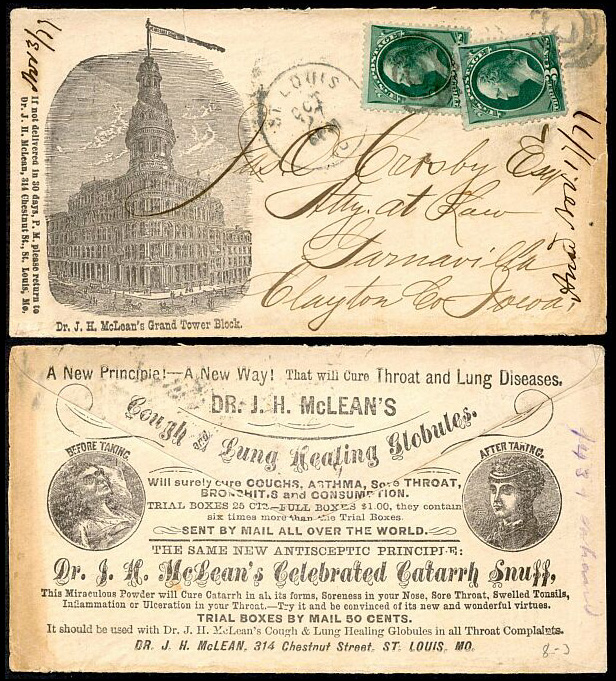 If not delivered in 30 days, P. M. please return to
Dr. J. H. McLean, 314 Chestnut St., St. Louis, Mo.
Dr. J. H. McLean's Grand Tower Block.
ST. LOUIS
POSTAGE
POSTAGE
Jas. O. Crosby Esq
Atty. at Law
Farnaville
Clayton Co Iowa,
A New Principle!—A New Way! That will Cure Throat and Lung Diseases.
DR. J. H. McLEAN'S
Cough and Lung Healing Globules.
BEFORE TAKING.
AFTER TAKING.
Will surely cure COUGHS, ASTHMA, Sore THROAT,
BRONCHITIS and CONSUMPTION.
TRIAL BOXES 25 CTS.—FULL BOXES $1.00, they contain
six times more than the Trial Boxes.
SENT BY MAIL ALL OVER THE WORLD.
THE SAME NEW ANTISCEPTIC PRINCIPLE:
Dr. J. H. McLean's Celebrated Catarrh Snuff,
This Miraculous Powder will Cure Catarrh in all its forms, Soreness in your Nose, Sore Throat, Swelled Tonsils,
Inflammation or Ulceration in your Throat.—Try it and be convinced of its new and wonderful virtues.
TRIAL BOXES BY MAIL 50 CENTS.
It should be used with Dr. J. H. McLean's Cough & Lung Healing Globules in all Throat Complaints.
DR. J. H. McLEAN, 314 Chestnut Street, ST. LOUIS, MO.
8-3